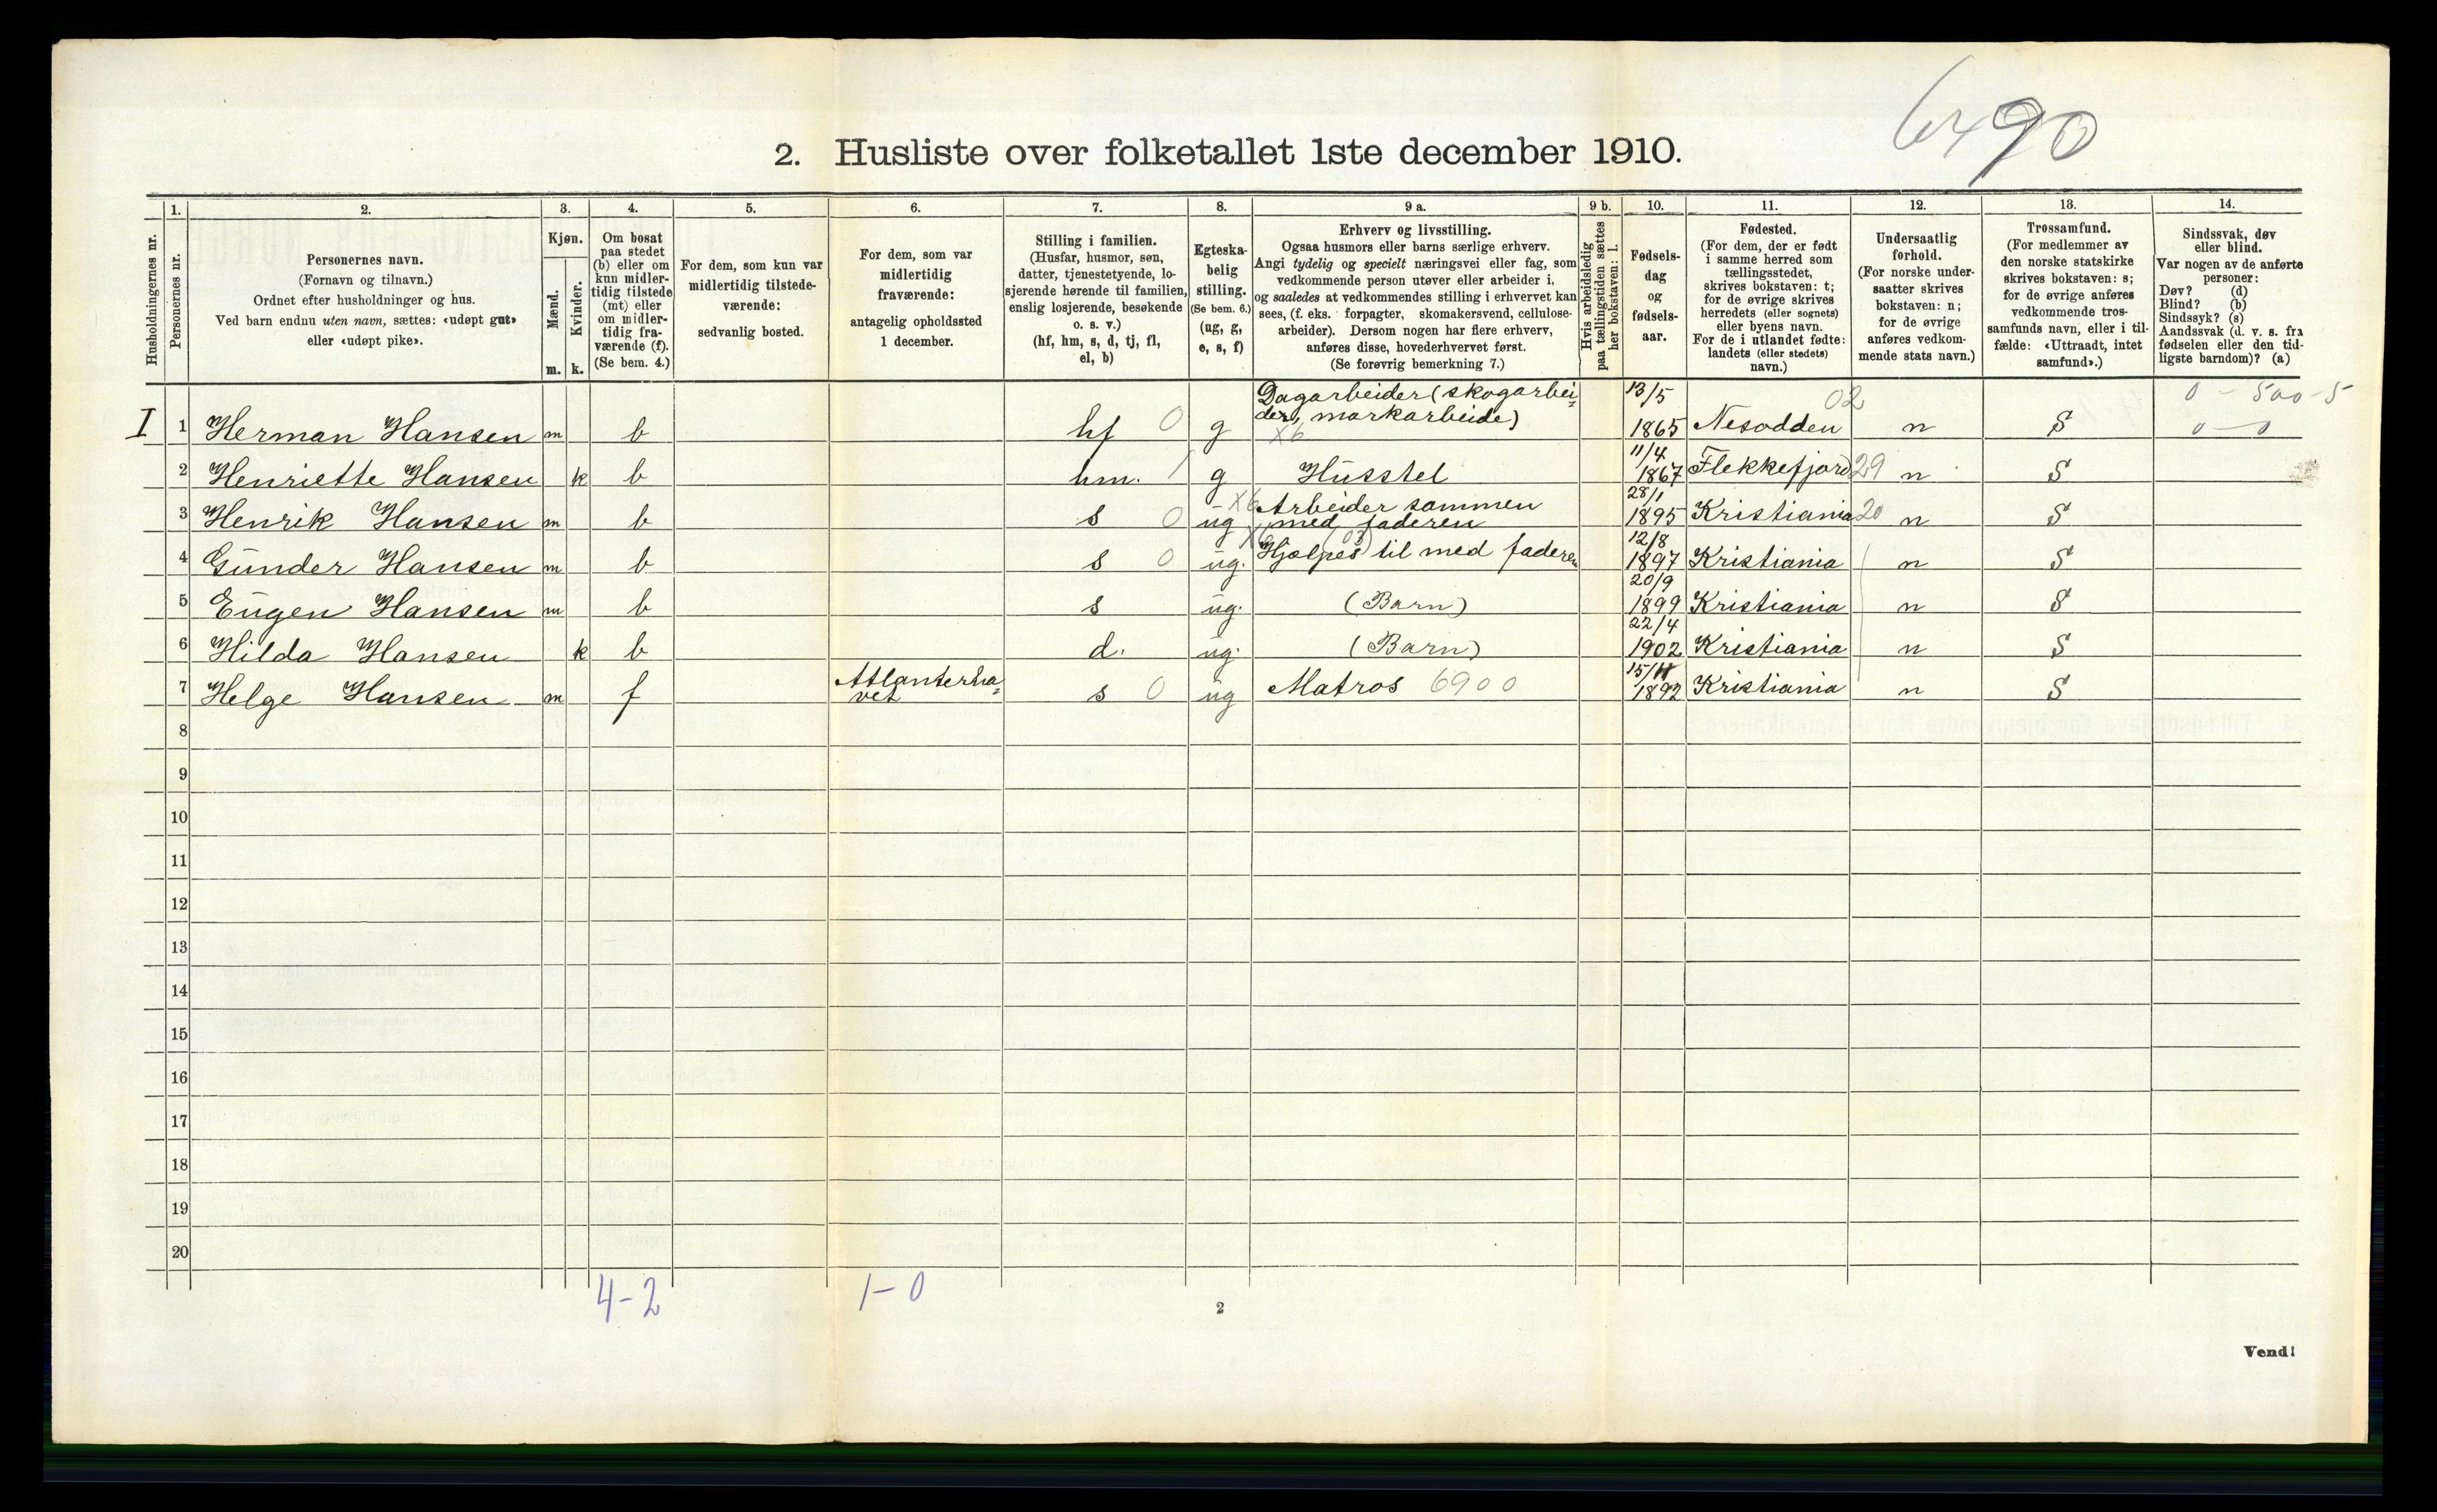 6490
2. Husliste over folketallet 1ste december 1910.
Husholdningernes nr.
1.
Personernes nr.
2.
Personernes navn.
(Fornavn og tilnavn.)
Ordnet efter husholdninger og hus.
Ved barn endnu uten navn, sættes: «udøpt gut»
eller «udøpt pike».
3.
Kjøn.
Mænd.
Kvinder.
m. k.
4.
Om bosat
paa stedet
(b) eller om
kun midler-
tidig tilstede
(mt) eller
om midler-
tidig fra-
værende (f).
(Se bem. 4.)
5.
For dem, som kun var
midlertidig tilstede-
værende:
sedvanlig bosted.
6.
For dem, som var
midlertidig
fraværende:
antagelig opholdssted
1 december.
7.
Stilling i familien.
(Husfar, husmor, søn,
datter, tjenestetyende, lo-
sjerende hørende til familien,
enslig losjerende, besøkende
o. s. v.)
(hf, hm, s, d, tj, fl,
el, b)
8.
Egteska-
belig
stilling.
(Se bem. 6.)
(ug, g,
e, s, f)
9 a.
Erhverv og livsstilling.
Ogsaa husmors eller barns særlige erhverv.
Angi tydelig og specielt næringsvei eller fag, som
vedkommende person utøver eller arbeider i,
og saaledes at vedkommendes stilling i erhvervet kan
sees, (f. eks. forpagter, skomakersvend, cellulose-
arbeider). Dersom nogen har flere erhverv,
anføres disse, hovederhvervet først.
(Se forøvrig bemerkning 7.)
9 b.
Hvis arbeidsledig
paa tællingstiden sættes
her bokstaven: l.
10.
Fødsels-
dag
og
fødsels-
aar.
11.
Fødested.
(For dem, der er født
i samme herred som
tællingsstedet,
skrives bokstaven: t;
for de øvrige skrives
herredets (eller sognets)
eller byens navn.
For de i utlandet fødte:
landets (eller stedets)
navn.)
12.
Undersaatlig
forhold.
(For norske under-
saatter skrives
bokstaven: n;
for de øvrige
anføres vedkom-
mende stats navn.)
13.
Trossamfund.
(For medlemmer av
den norske statskirke
skrives bokstaven: s;
for de øvrige anføres
vedkommende tros-
samfunds navn, eller i til-
fælde: «Uttraadt, intet
samfund».)
14.
Sindssvak, døv
eller blind.
Var nogen av de anførte
personer:
Døv? (d)
Blind? (b)
Sindssyk? (s)
Aandssvak (d. v. s. fra
fødselen eller den tid-
ligste barndom)? (a)
Dagarbeider (skogarbei= 13/5 02 0 - 500-5
I 1 Herman Hansen m b hf 0 g der, markarbeide) X6 1865 Nesodden n S 0-0
2 Henriette Hansen k b hm. 1 g Husstel 11/4 1867 Flekkefjord 29 n S
3 Henrik Hansen m b s 0 ug X6 Arbeider sammen med faderen 28/1 1895 Kristiania 20 n S
4 Gunder Hansen m b s 0 ug. X6 Hjælpes til med faderen 12/8 1897 Kristiania n S
5 Eugen Hansen m b s ug. (Barn) 20/9 1899 Kristiania n S
6 Hilda Hansen k b d. ug. (Barn) 22/4 1902 Kristiania n S
7 Helge Hansen m f Atlanterha= vet s 0 ug Matros 6900 15/11 1892 Kristiania n S
8
9
10
11
12
13
14
15
16
17
18
19
20
4-2 1-0
2
Vend!